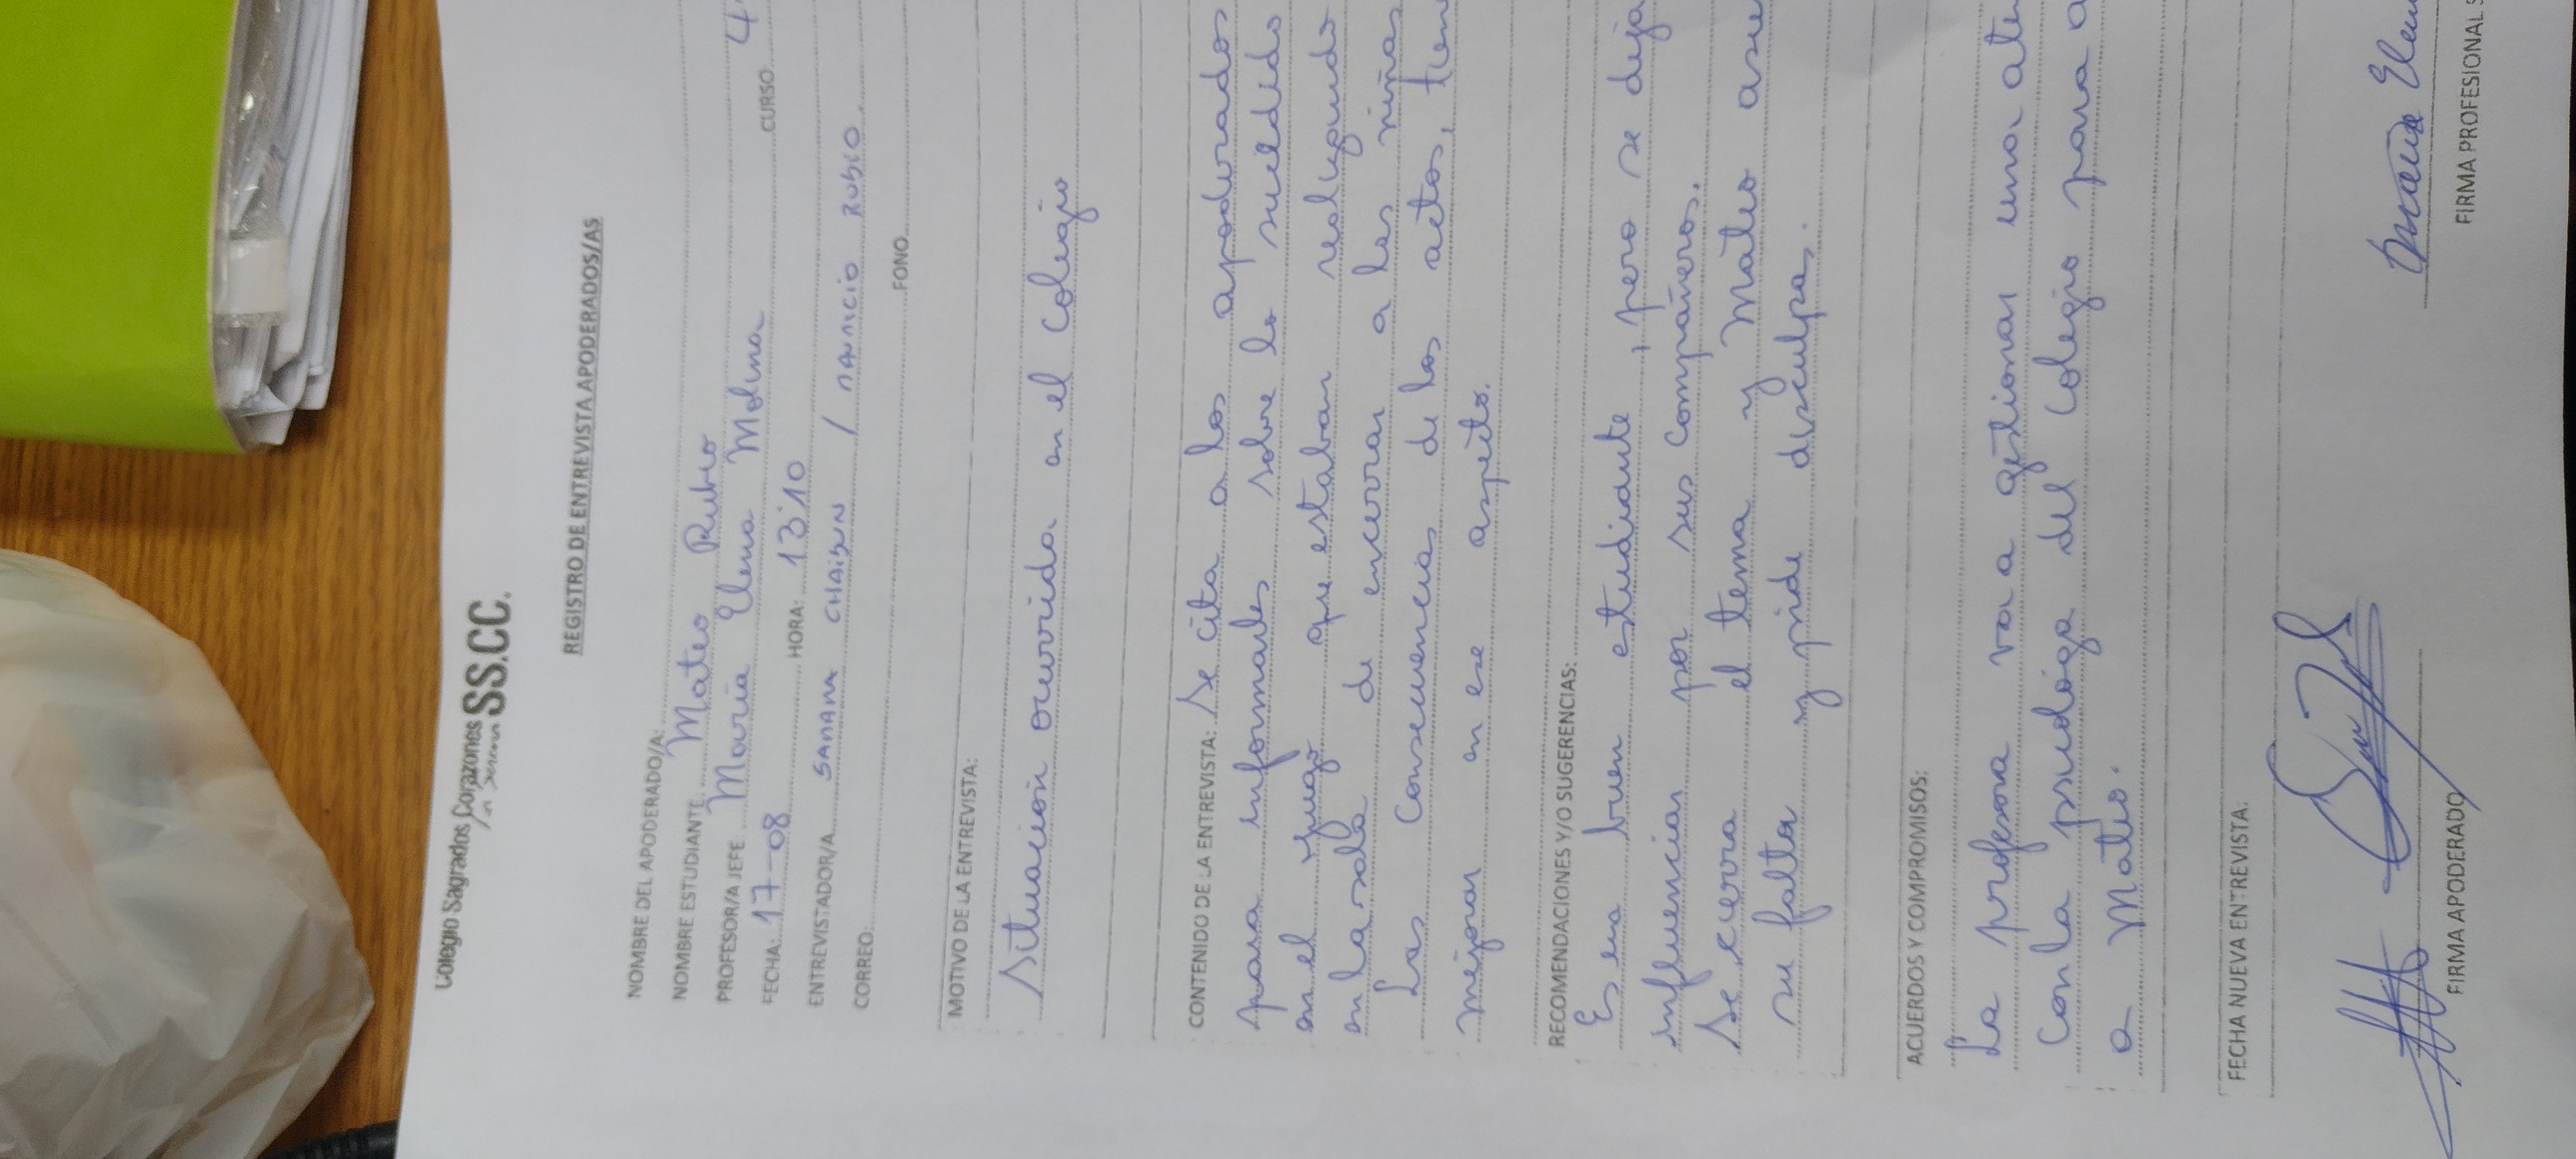 Colegio Sagrados Corazones
SS.CC.
REGISTRO DE ENTREVISTA APODERADOS/AS
NOMBRE DEL APODERADO/A:
NOMBRE ESTUDIANTE Mateo Rubio
PROFESOR/A JEFE María Elena Molina CURSO 4
FECHA: 17-08 HORA: 13:10
ENTREVISTADOR/A / RUBIO.
CORREO: FONO
MOTIVO DE LA ENTREVISTA:
Situación ocurrida en el Colegio
CONTENIDO DE LA ENTREVISTA: Se cita a los apoderados
para informarles sobre lo sucedido
en el juego que estaban realizando
en la sala de encerrar a las niñas
Las consecuencias de los actos, tien
mejorar en ese aspecto.
RECOMENDACIONES Y/O SUGERENCIAS:
Es un buen estudiante, pero se deja
influenciar por sus compañeros.
Se cierra el tema y Mateo asu
su falta y pide disculpas.
ACUERDOS Y COMPROMISOS:
La profesora va a gestionar una ate
con la psicóloga del Colegio para a
a Mateo.
FECHA NUEVA ENTREVISTA:
FIRMA APODERADO
FIRMA PROFESIONAL S